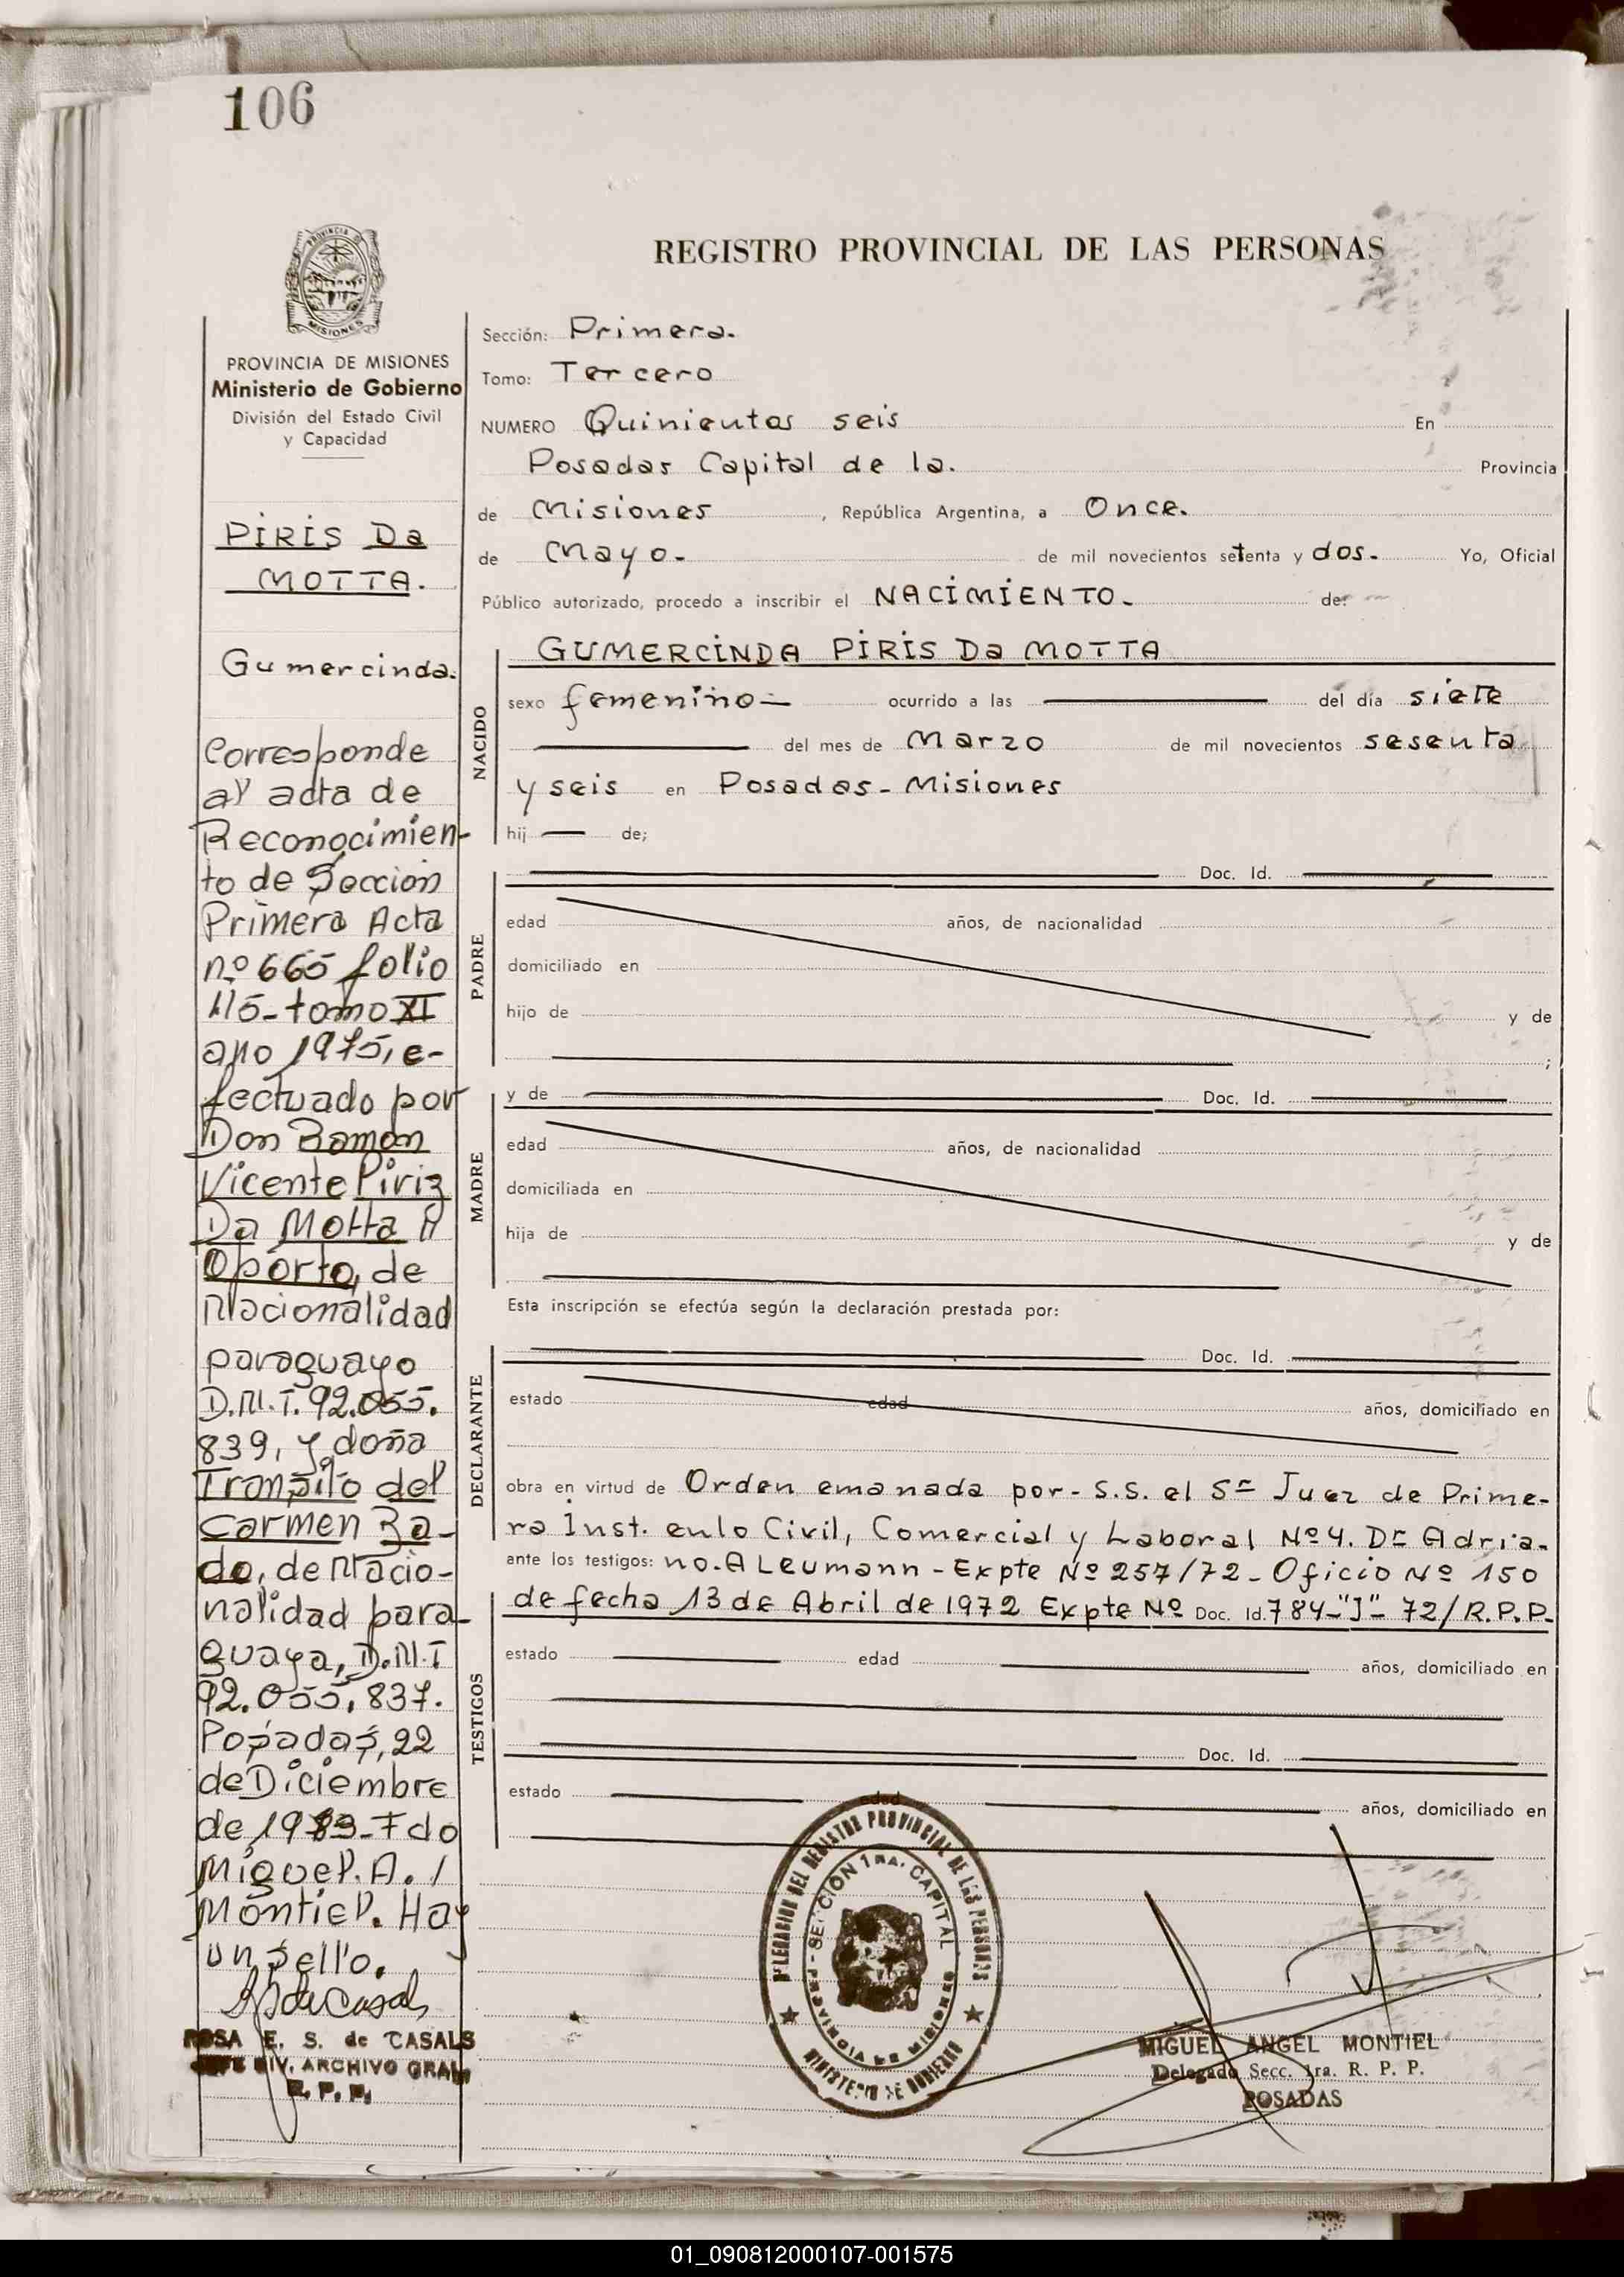 106
REGISTRO PROVINCIAL DE LAS PERSONAS
PROVINCIA
MISIONES
PROVINCIA DE MISIONES
Ministerio de Gobierno
División del Estado Civil
y Capacidad
PIRIS Da
MOTTA.
Gumercinda.
Corresponde
al acta de
Reconocimien-
to de Sección
Primera Acta
nº 665 folio
115-tomo XI
año 1975, e-
fectuado por
Don Ramón
Vicente Piriz
Da Motta
Oporto, de
Nacionalidad
paraguayo
D.N.I. 92.055.
839, y doña
Transito del
Carmen
do, de Nacio-
nalidad para-
guaya, D.N.I
92.055.837.
Posadas, 22
de Diciembre
de 1983-Fdo
Miguel. A. /
Montiel. Hay
un sello.
ROSA E. S. de CASALS
JEFE DIV. ARCHIVO GRAL
R. P. P.
Sección: Primera.
Tomo: Tercero
NUMERO Quinientos seis En
Posadas Capital de la. Provincia
de Misiones , República Argentina, a Once.
de Mayo. de mil novecientos setenta y dos. Yo, Oficial
Público autorizado, procedo a inscribir el NACIMIENTO. de:
NACIDO
GUMERCINDA PIRIS Da MOTTA
sexo femenino ocurrido a las del día siete
del mes de Marzo de mil novecientos sesenta
y seis en Posadas - Misiones
hij de;
PADRE
Doc. Id.
edad años, de nacionalidad
domiciliado en
hijo de y de
;
MADRE
y de Doc. Id.
edad años, de nacionalidad
domiciliada en
hija de y de
Esta inscripción se efectúa según la declaración prestada por:
DECLARANTE
Doc. Id.
estado edad años, domiciliado en
obra en virtud de Orden emanada por - S.S. el Sr Juez de Prime-
ra Inst. en lo Civil, Comercial y Laboral Nº 4. Dr Adria-
ante los testigos: no. A Leumann - Expte Nº 257/72 - Oficio Nº 150
de fecha 13 de Abril de 1972 Expte Nº Doc. Id. 784-"J"- 72/R.P.P.
TESTIGOS
estado edad años, domiciliado en
Doc. Id.
estado edad años, domiciliado en
DELEGACION DEL REGISTRO PROVINCIAL DE LAS PERSONAS
SECCION 1RA. CAPITAL
PROVINCIA DE MISIONES
MINISTERIO DE GOBIERNO
MIGUEL ANGEL MONTIEL
Delegado Secc. 1ra. R. P. P.
POSADAS
01_090812000107-001575